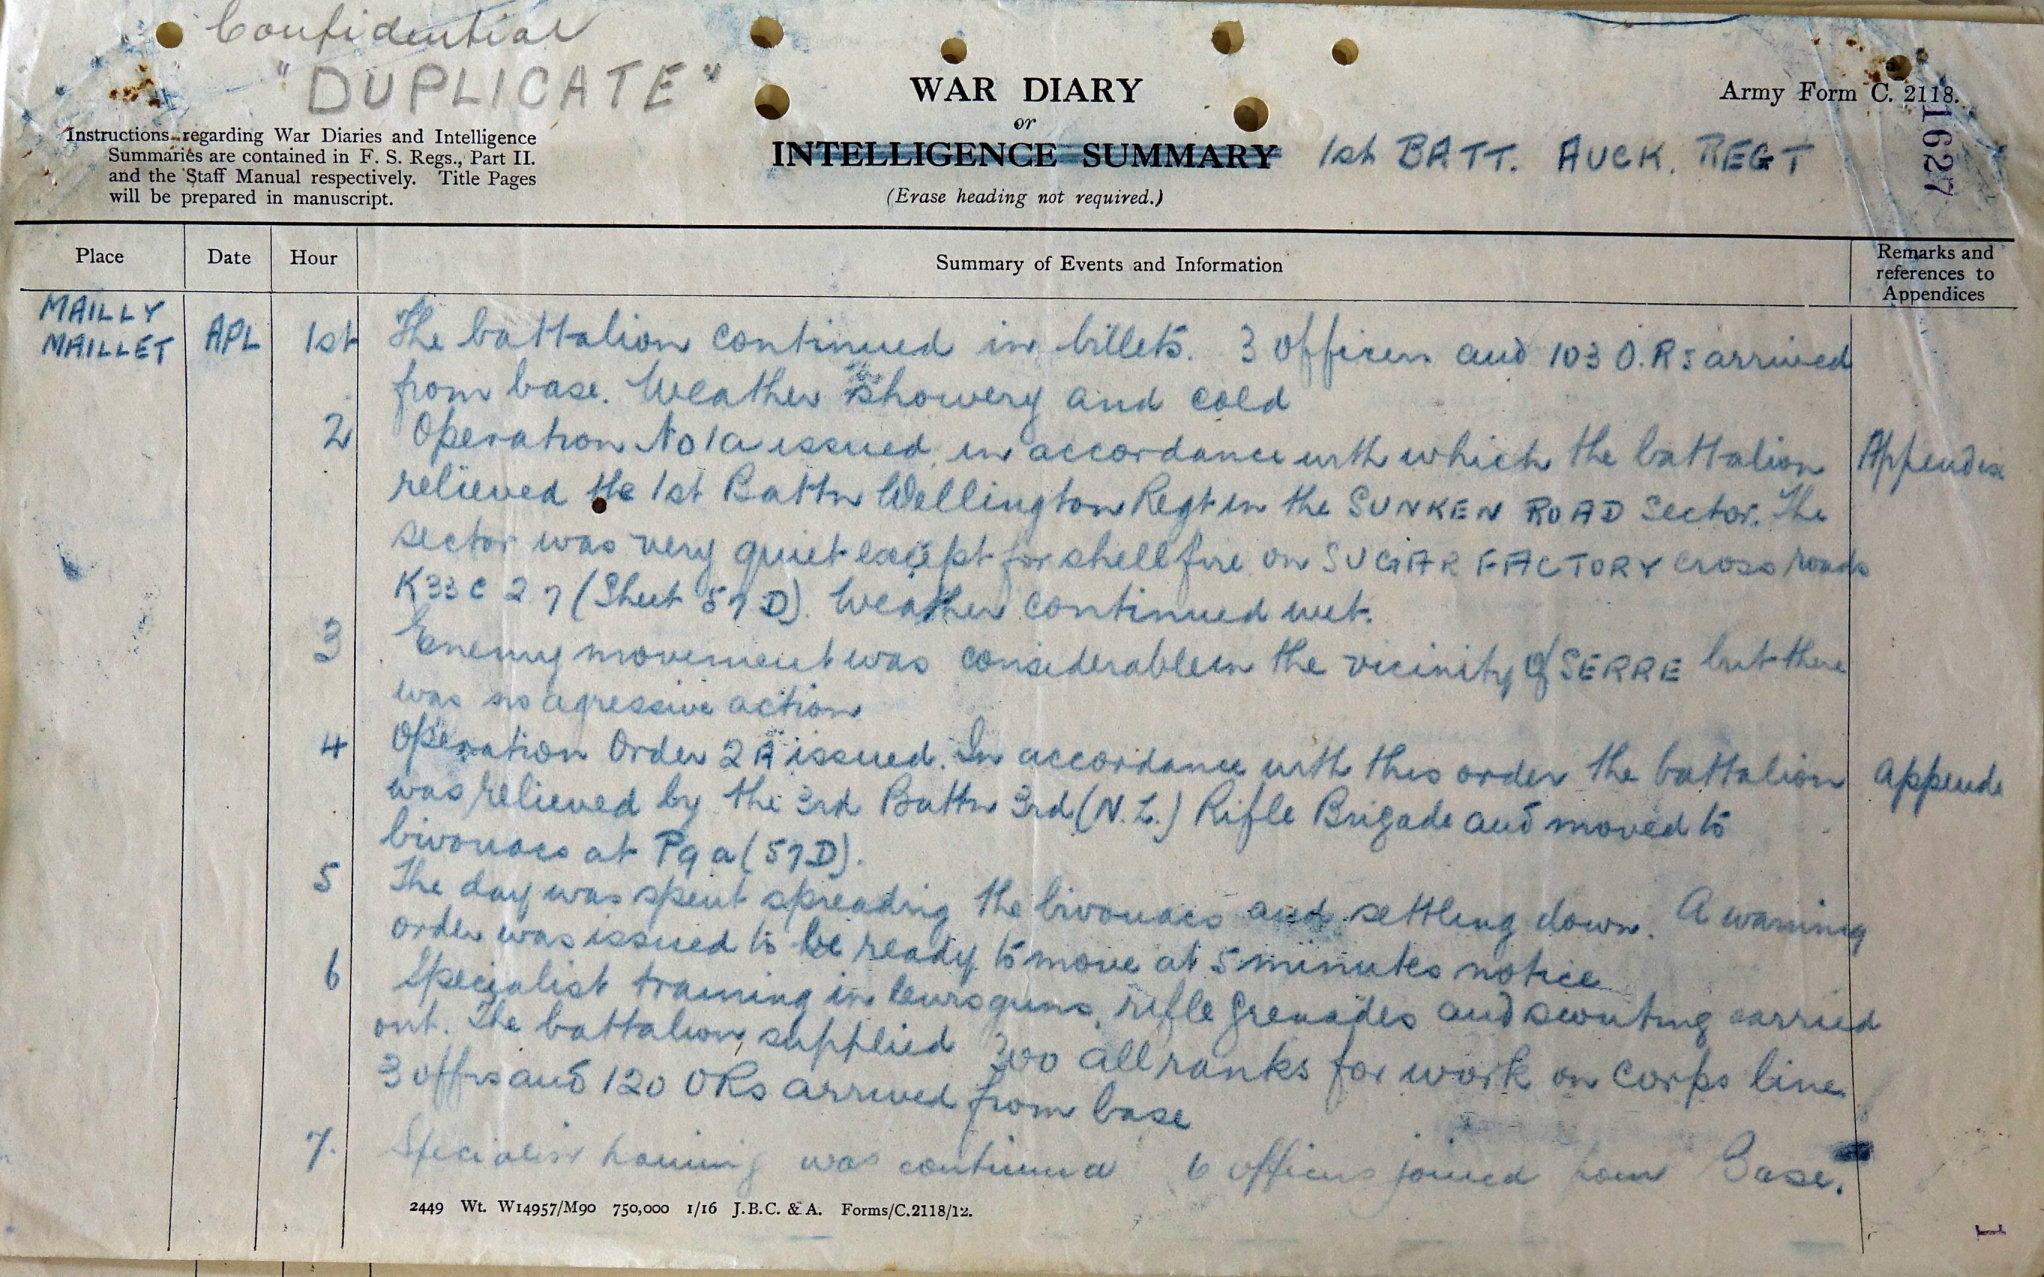 Confidential
"DUPLICATE"
WAR DIARY
or
INTELLIGENCE SUMMARY
(Erase heading not required.)
1st BATT. AUCK. REGT
Army Form C. 2118.
1627
Instructions regarding War Diaries and Intelligence
Summaries are contained in F. S. Regs., Part II.
and the Staff Manual respectively. Title Pages
will be prepared in manuscript.
Place Date Hour Summary of Events and Information Remarks and
references to
Appendices
MAILLY
MAILLET APL 1st The battalion continued in billets. 3 Officers and 103 O.Rs arrived
from base. Weather showery and cold
2 Operation No 1a issued in accordance with which the battalion Appendix
relieved the 1st Battn Wellington Regt in the SUNKEN ROAD Sector. The
sector was very quiet except for shell fire on SUGAR FACTORY cross roads
K33c 2.7 (Sheet 57D). Weather continued wet.
3 Enemy movement was considerable in the vicinity of SERRE but there
was no agressive action
4 Operation Order 2A issued. In accordance with this order the battalion Appendi
was relieved by the 3rd Battn 3rd (N.Z.) Rifle Brigade and moved to
bivouacs at P9a (57D).
5 The day was spent spreading the bivouacs and settling down. A warning
order was issued to be ready to move at 5 minutes notice
6 Specialist training in lewisguns, rifle grenades and scouting carried
out. The battalion supplied 300 all ranks for work on Corps line.
3 offrs and 120 ORs arrived from base
7. Specialist training was continued 6 officers joined from Base.
2449 Wt. W14957/M90 750,000 1/16 J.B.C. & A. Forms/C.2118/12.
1